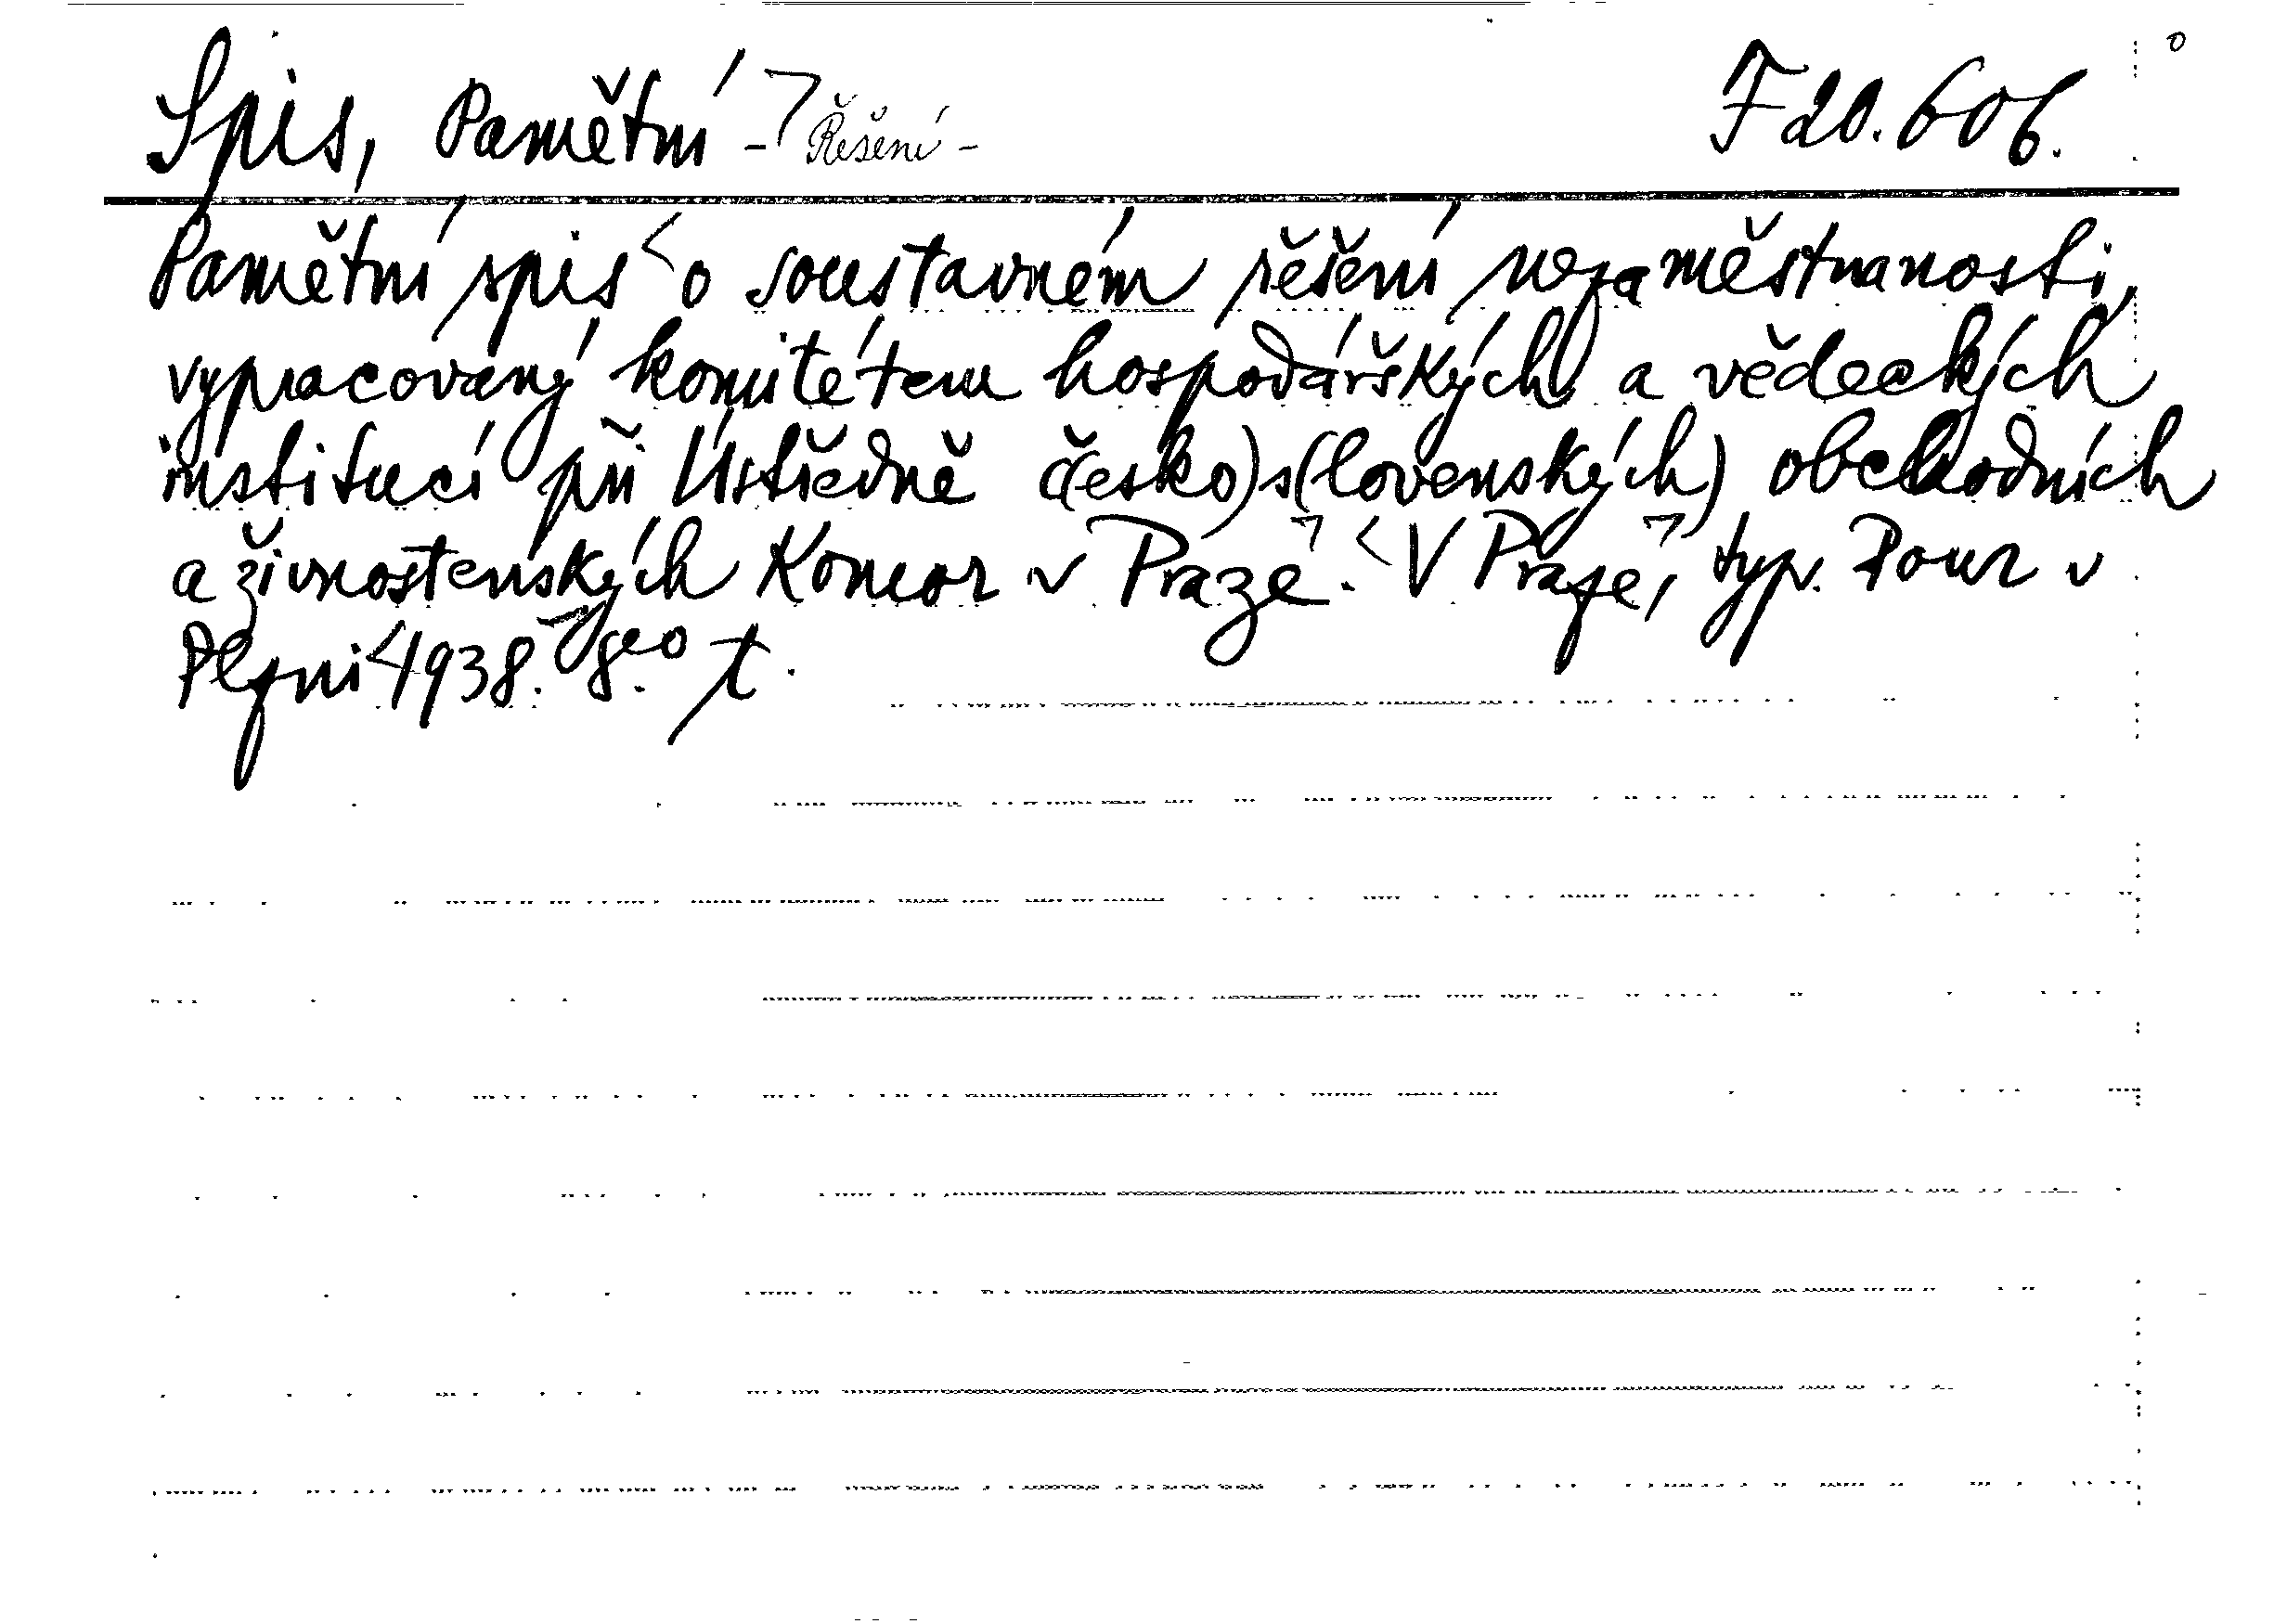 Spis, Pamětní - Řešení - F 20.606.
Pamětní spis o soustavném řěšení nezaměstnanosti,
vypracovaný komitétem hospodářských a vědeckých
institucí při Ústředně česko)s(lovenských) obchodních
a živnostenských komor v Praze. V Praze, typ. Pour v
Plzni 1938. 8eo t.